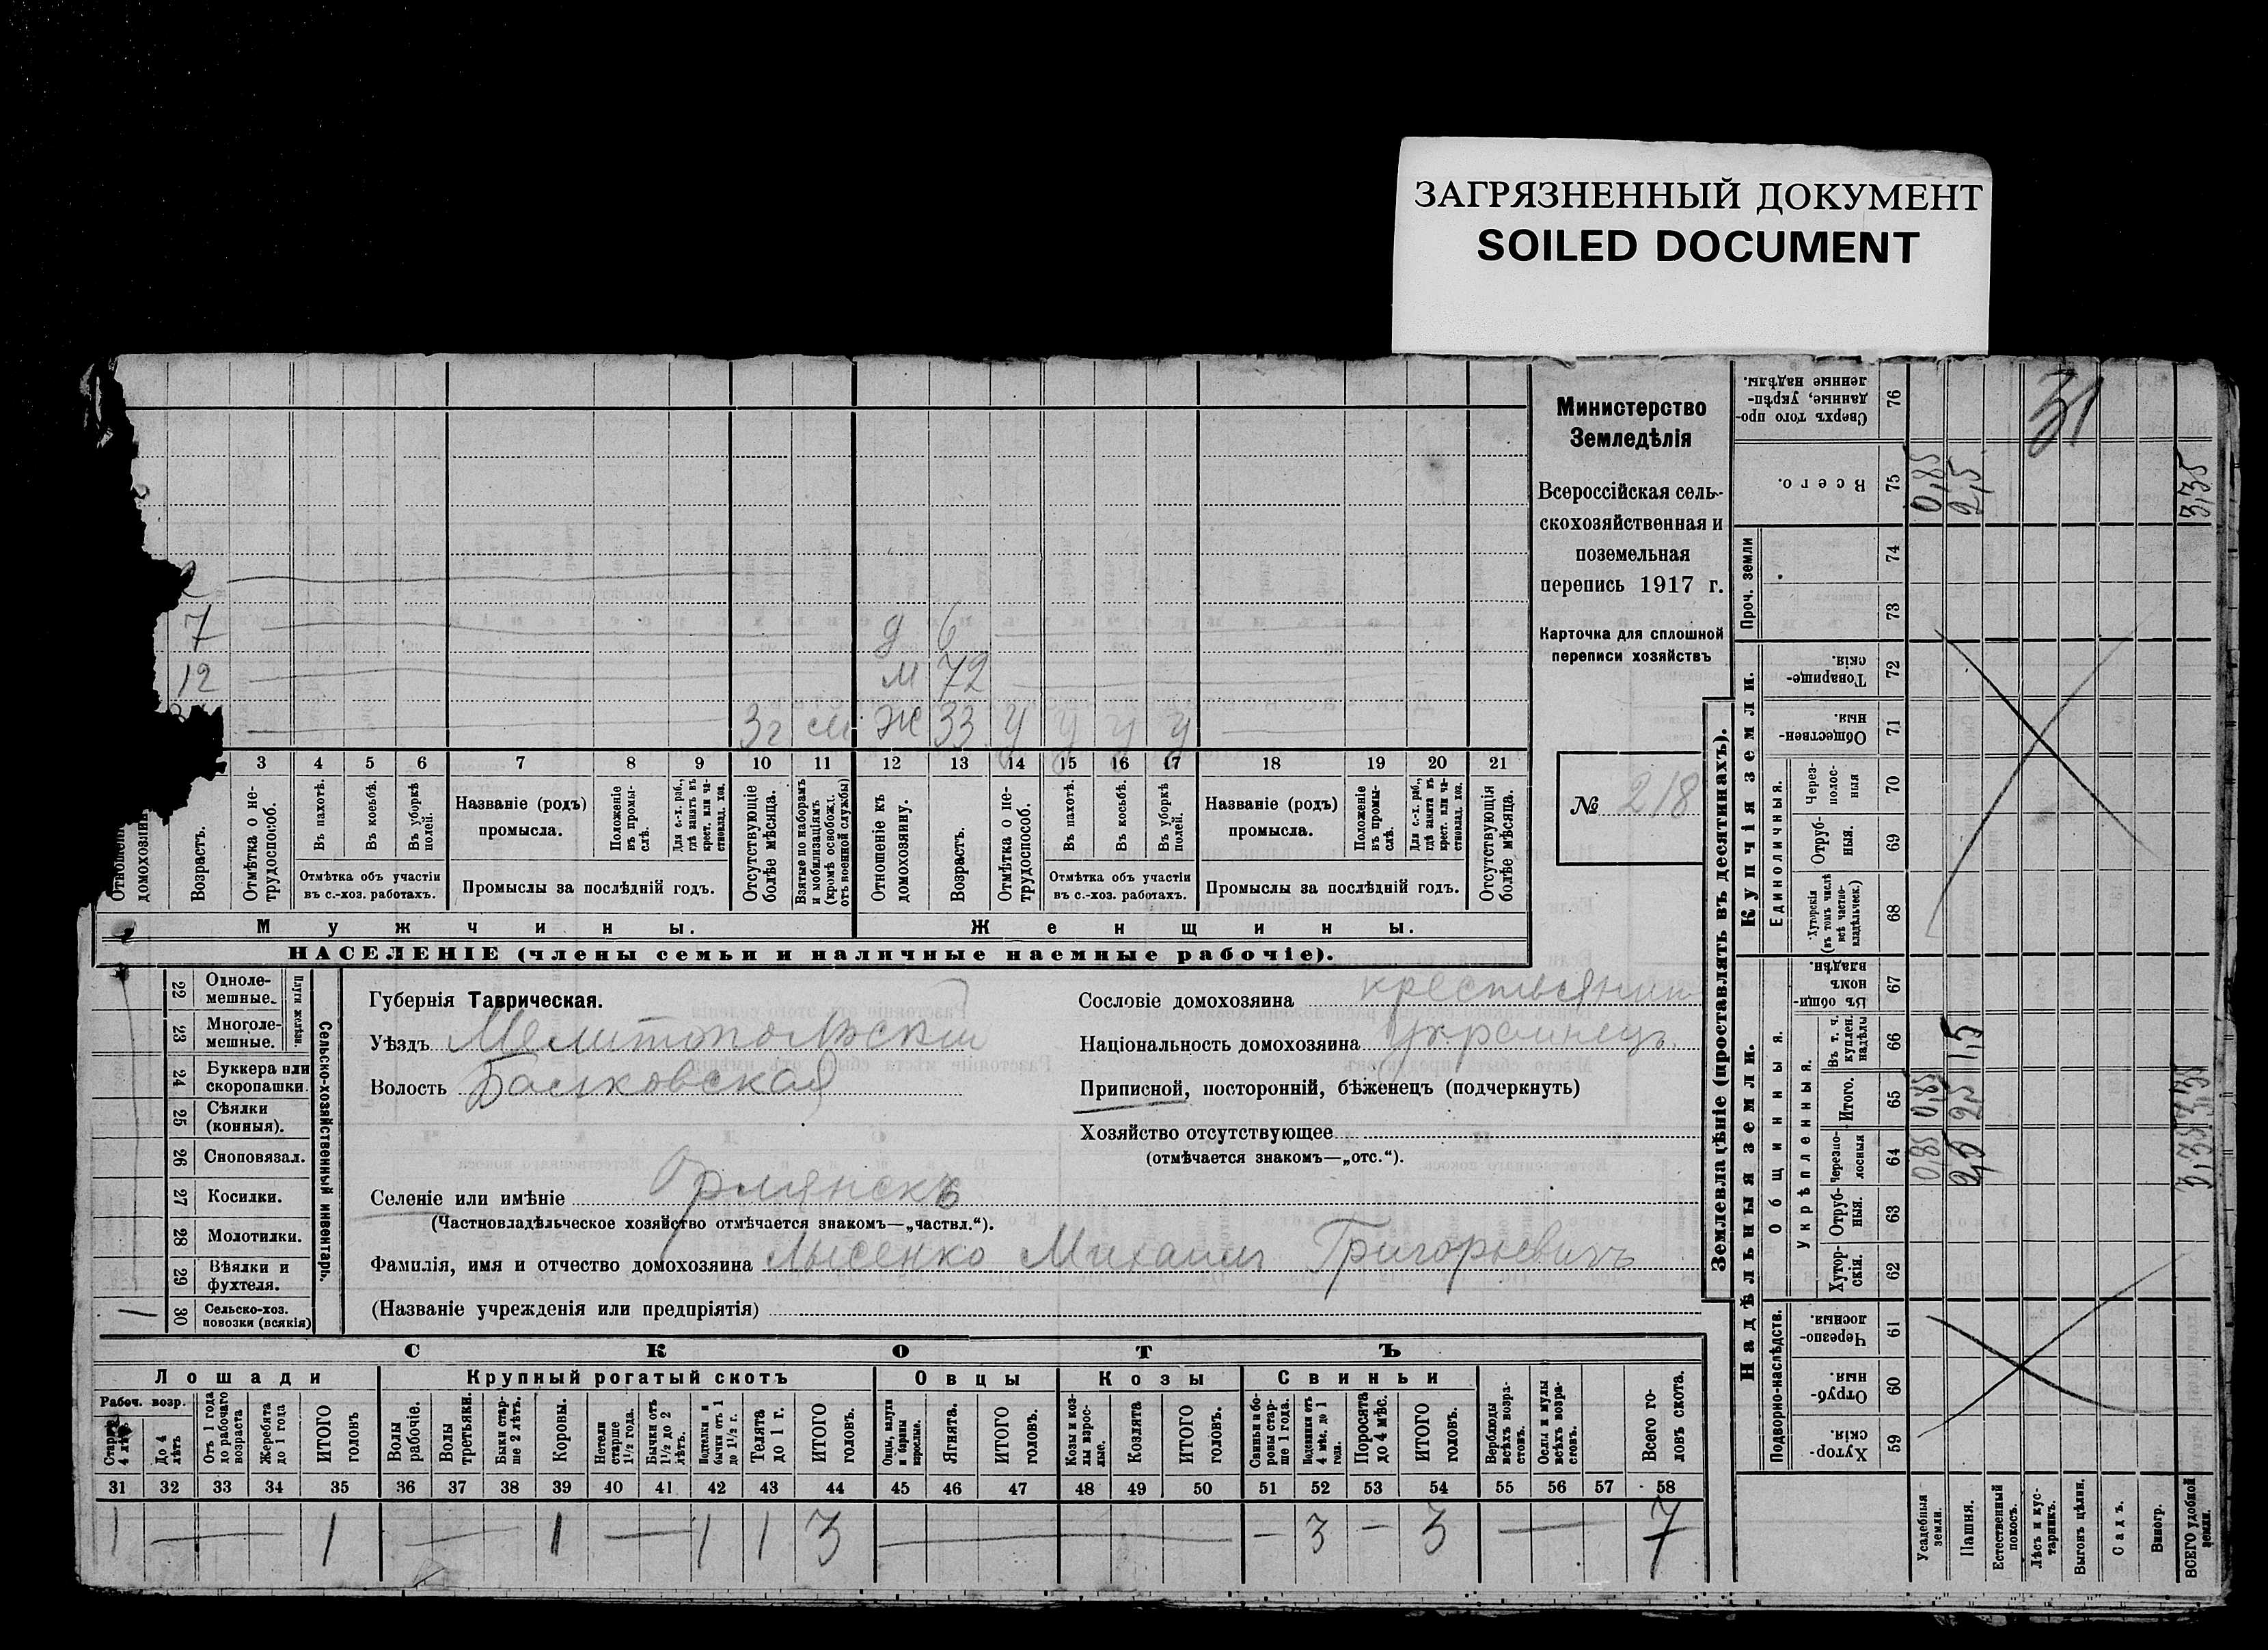 ЗАГРЯЗНЕННЫЙ ДОКУМЕНТ
SOILED DOCUMENT
Министерство
Земледѣлія
Всероссійская сель-
скохозяйственная и
поземельная
перепись 1917 г.
Карточка для сплошной
переписи хозяйствъ
№ 218
7 д 6
12 м 72
3 г см Ж 33 у у у у
3 4 5 6 7 8 9 10 11 12 13 14 15 16 17 18 19 20 21
домохозяину.
Возрастъ.
Отмѣтка о не-
трудоспособ.
Въ пахотѣ.
Въ косьбѣ.
Въ уборкѣ
полей.
Отмѣтка объ участіи
въ с.-хоз. работахъ.
Названіе (родъ)
промысла.
Положеніе
въ промы-
слѣ.
Для с.-х. раб.,
гдѣ занятъ въ
крест. или ча-
стновлад. хоз.
Промыслы за послѣдній годъ.
Отсутствующіе
болѣе мѣсяца.
Взятые по наборамъ
и мобилизаціямъ
(кромѣ освобожд.
отъ военной службы)
Отношеніе къ
домохозяину.
Возрастъ.
Отмѣтка о не-
трудоспособ.
Въ пахотѣ.
Въ косьбѣ.
Въ уборкѣ
полей.
Отмѣтка объ участіи
въ с.-хоз. работахъ.
Названіе (родъ)
промысла.
Положеніе
въ промы-
слѣ.
Для с.-х. раб.,
гдѣ занята въ
крест. или ча-
стновлад. хоз.
Промыслы за послѣдній годъ.
Отсутствующія
болѣе мѣсяца.
Мужчины.
Женщины.
НАСЕЛЕНІЕ (члены семьи и наличные наемные рабочіе).
Сельско-хозяйственный инвентарь.
Плуги желѣзн.
22 Одноле-
мешные.
23 Многоле-
мешные.
24 Буккера или
скоропашки.
25 Сѣялки
(конныя).
26 Сноповязал.
27 Косилки.
28 Молотилки.
29 Вѣялки и
фухтеля.
1 30 Сельско-хоз.
повозки (всякія)
Губернія Таврическая.
Уѣздъ Мелитопольскій
Волость Балковская
Селеніе или имѣніе Орлянскъ
(Частновладѣльческое хозяйство отмѣчается знакомъ—„частвл.“).
Фамилія, имя и отчество домохозяина Лысенко Михаилъ Григорьевичъ
(Названіе учрежденія или предпріятія)
Сословіе домохозяина крестьянин
Національность домохозяина украинецъ
Приписной, посторонній, бѣженецъ (подчеркнуть)
Хозяйство отсутствующее
(отмѣчается знакомъ—„отс.“).
СКОТЪ
Лошади
Крупный рогатый скотъ
Овцы
Козы
Свиньи
Рабоч. возр.
До 4
лѣтъ
Отъ 1 года
до рабочаго
возраста
Жеребята
до 1 года
ИТОГО
головъ
Волы
рабочіе.
Волы
третьяки.
Быки стар-
ше 2 лѣтъ.
Коровы.
Нетели
старше
1½ года.
Бычки отъ
1½ до 2
лѣтъ.
Подтелки и
бычки отъ 1
до 1½ г.
Телята
до 1 г.
ИТОГО
головъ.
Овцы, валухи
и бараны
взрослые.
Ягнята.
ИТОГО
головъ.
Козы и коз-
лы взрос-
лые.
Козлята
ИТОГО
головъ.
Свиньи и бо-
ровы стар-
ше 1 года.
Подсвинки отъ
4 мѣс. до 1
года.
Поросята
до 4 мѣс.
ИТОГО
головъ.
Верблюды
всѣхъ возра-
стовъ.
Ослы и мулы
всѣхъ возра-
стовъ.
Всего го-
ловъ скота.
31 32 33 34 35 36 37 38 39 40 41 42 43 44 45 46 47 48 49 50 51 52 53 54 55 56 57 58
1 — 1 — 1 — 1 1 3 — — 3 — 3 — 7
Землевладѣніе (проставлять въ десятинахъ).
Надѣльныя земли.
Купчія земли.
Проч. земли
Подворно-наслѣдств.
Общинныя.
Укрѣпленныя.
Единоличныя.
Сверхъ того про-
данные, укрѣп-
ленные надѣлы.
76
31
Всего.
75 0,85 2,5 3,35
74
73
Товарище-
скія.
72
Обществен-
ныя.
71
Через-
полос-
ныя
70
Отруб-
ныя.
69
Хуторскія
(въ томъ числѣ
всѣ частно-
владѣльческ.)
68
Въ общин-
номъ
владѣн.
67
Въ т. ч.
куплен.
надѣлы
66 1,5
Итого.
65 0,85 2,5 3,35
Черезпо-
лосныя
64 0,85 2,5 3,35
Отруб-
ныя.
63
Хутор-
скія.
62
Черезпо-
лосныя.
61
Отруб-
ныя.
60
Хутор-
скія.
59
Усадебныя
земли.
Пашня.
Естественный
покосъ.
Лѣсъ и кус-
тарникъ.
Выгонъ цѣлин.
Садъ.
Виногр.
ВСЕГО удобной
земли.